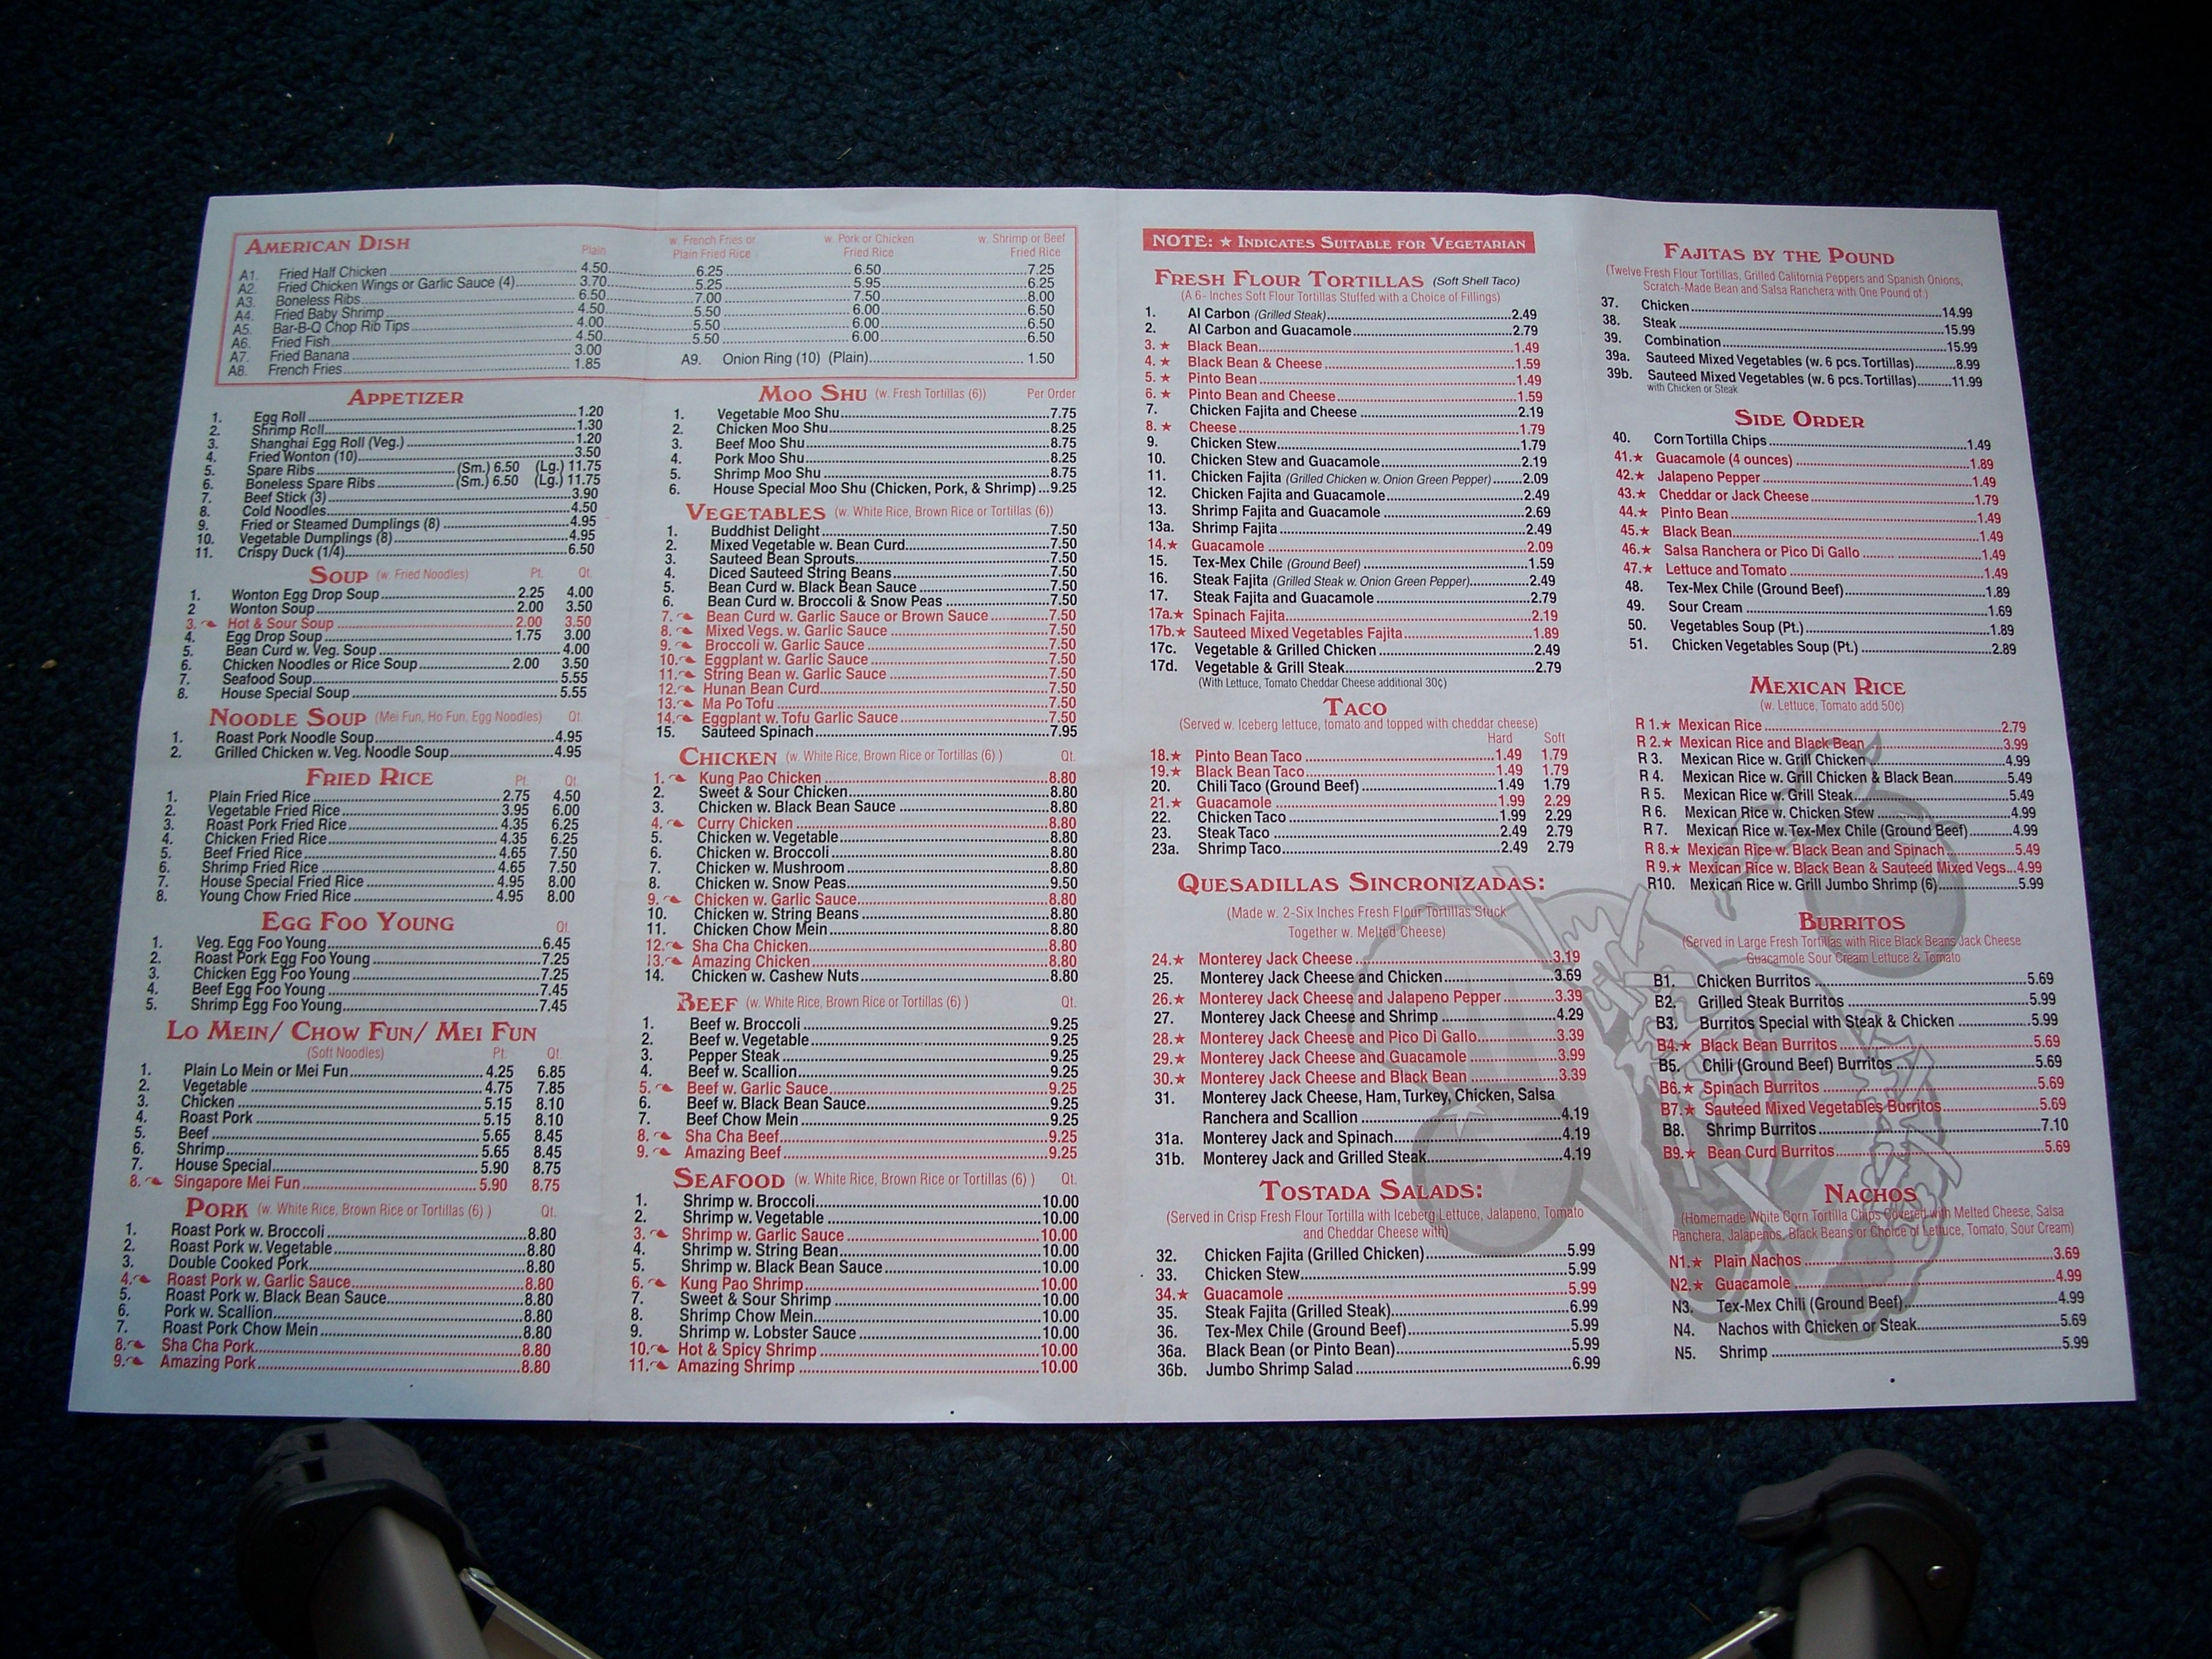 AMERICAN DISH
Plain
w. French Fries or Plain Fried Rice
w. Pork or Chicken Fried Rice
w. Shrimp or Beef Fried Rice
A1. Fried Half Chicken 4.50 6.25 6.50 7.25
A2. Fried Chicken Wings or Garlic Sauce (4) 3.70 5.25 5.95 6.25
A3. Boneless Ribs 6.50 7.00 7.50 8.00
A4. Fried Baby Shrimp 4.50 5.50 6.00 6.50
A5. Bar-B-Q Chop Rib Tips 4.00 5.50 6.00 6.50
A6. Fried Fish 4.50 5.50 6.00 6.50
A7. Fried Banana 3.00
A8. French Fries 1.85
A9. Onion Ring (10) (Plain) 1.50
APPETIZER
1. Egg Roll 1.20
2. Shrimp Roll 1.30
3. Shanghai Egg Roll (Veg.) 1.20
4. Fried Wonton (10) 3.50
5. Spare Ribs (Sm.) 6.50 (Lg.) 11.75
6. Boneless Spare Ribs (Sm.) 6.50 (Lg.) 11.75
7. Beef Stick (3) 3.90
8. Cold Noodles 4.50
9. Fried or Steamed Dumplings (8) 4.95
10. Vegetable Dumplings (8) 4.95
11. Crispy Duck (1/4) 6.50
SOUP (w. Fried Noodles) Pt. Qt.
1. Wonton Egg Drop Soup 2.25 4.00
2 Wonton Soup 2.00 3.50
3. Hot & Sour Soup 2.00 3.50
4. Egg Drop Soup 1.75 3.00
5. Bean Curd w. Veg. Soup 4.00
6. Chicken Noodles or Rice Soup 2.00 3.50
7. Seafood Soup 5.55
8. House Special Soup 5.55
NOODLE SOUP (Mei Fun, Ho Fun, Egg Noodles) Qt.
1. Roast Pork Noodle Soup 4.95
2. Grilled Chicken w. Veg. Noodle Soup 4.95
FRIED RICE Pt. Qt.
1. Plain Fried Rice 2.75 4.50
2. Vegetable Fried Rice 3.95 6.00
3. Roast Pork Fried Rice 4.35 6.25
4. Chicken Fried Rice 4.35 6.25
5. Beef Fried Rice 4.65 7.50
6. Shrimp Fried Rice 4.65 7.50
7. House Special Fried Rice 4.95 8.00
8. Young Chow Fried Rice 4.95 8.00
EGG FOO YOUNG Qt.
1. Veg. Egg Foo Young 6.45
2. Roast Pork Egg Foo Young 7.25
3. Chicken Egg Foo Young 7.25
4. Beef Egg Foo Young 7.45
5. Shrimp Egg Foo Young 7.45
LO MEIN/ CHOW FUN/ MEI FUN
(Soft Noodles) Pt. Qt.
1. Plain Lo Mein or Mei Fun 4.25 6.85
2. Vegetable 4.75 7.85
3. Chicken 5.15 8.10
4. Roast Pork 5.15 8.10
5. Beef 5.65 8.45
6. Shrimp 5.65 8.45
7. House Special 5.90 8.75
8. Singapore Mei Fun 5.90 8.75
PORK (w. White Rice, Brown Rice or Tortillas (6) ) Qt.
1. Roast Pork w. Broccoli 8.80
2. Roast Pork w. Vegetable 8.80
3. Double Cooked Pork 8.80
4. Roast Pork w. Garlic Sauce 8.80
5. Roast Pork w. Black Bean Sauce 8.80
6. Pork w. Scallion 8.80
7. Roast Pork Chow Mein 8.80
8. Sha Cha Pork 8.80
9. Amazing Pork 8.80
MOO SHU (w. Fresh Tortillas (6)) Per Order
1. Vegetable Moo Shu 7.75
2. Chicken Moo Shu 8.25
3. Beef Moo Shu 8.75
4. Pork Moo Shu 8.25
5. Shrimp Moo Shu 8.75
6. House Special Moo Shu (Chicken, Pork, & Shrimp) 9.25
VEGETABLES (w. White Rice, Brown Rice or Tortillas (6))
1. Buddhist Delight 7.50
2. Mixed Vegetable w. Bean Curd 7.50
3. Sauteed Bean Sprouts 7.50
4. Diced Sauteed String Beans 7.50
5. Bean Curd w. Black Bean Sauce 7.50
6. Bean Curd w. Broccoli & Snow Peas 7.50
7. Bean Curd w. Garlic Sauce or Brown Sauce 7.50
8. Mixed Vegs. w. Garlic Sauce 7.50
9. Broccoli w. Garlic Sauce 7.50
10. Eggplant w. Garlic Sauce 7.50
11. String Bean w. Garlic Sauce 7.50
12. Hunan Bean Curd 7.50
13. Ma Po Tofu 7.50
14. Eggplant w. Tofu Garlic Sauce 7.50
15. Sauteed Spinach 7.95
CHICKEN (w. White Rice, Brown Rice or Tortillas (6) ) Qt.
1. Kung Pao Chicken 8.80
2. Sweet & Sour Chicken 8.80
3. Chicken w. Black Bean Sauce 8.80
4. Curry Chicken 8.80
5. Chicken w. Vegetable 8.80
6. Chicken w. Broccoli 8.80
7. Chicken w. Mushroom 8.80
8. Chicken w. Snow Peas 9.50
9. Chicken w. Garlic Sauce 8.80
10. Chicken w. String Beans 8.80
11. Chicken Chow Mein 8.80
12. Sha Cha Chicken 8.80
13. Amazing Chicken 8.80
14. Chicken w. Cashew Nuts 8.80
BEEF (w. White Rice, Brown Rice or Tortillas (6) ) Qt.
1. Beef w. Broccoli 9.25
2. Beef w. Vegetable 9.25
3. Pepper Steak 9.25
4. Beef w. Scallion 9.25
5. Beef w. Garlic Sauce 9.25
6. Beef w. Black Bean Sauce 9.25
7. Beef Chow Mein 9.25
8. Sha Cha Beef 9.25
9. Amazing Beef 9.25
SEAFOOD (w. White Rice, Brown Rice or Tortillas (6) ) Qt.
1. Shrimp w. Broccoli 10.00
2. Shrimp w. Vegetable 10.00
3. Shrimp w. Garlic Sauce 10.00
4. Shrimp w. String Bean 10.00
5. Shrimp w. Black Bean Sauce 10.00
6. Kung Pao Shrimp 10.00
7. Sweet & Sour Shrimp 10.00
8. Shrimp Chow Mein 10.00
9. Shrimp w. Lobster Sauce 10.00
10. Hot & Spicy Shrimp 10.00
11. Amazing Shrimp 10.00
NOTE: ★ INDICATES SUITABLE FOR VEGETARIAN
FRESH FLOUR TORTILLAS (Soft Shell Taco)
(A 6- Inches Soft Flour Tortillas Stuffed with a Choice of Fillings)
1. Al Carbon (Grilled Steak) 2.49
2. Al Carbon and Guacamole 2.79
3. ★ Black Bean 1.49
4. ★ Black Bean & Cheese 1.59
5. ★ Pinto Bean 1.49
6. ★ Pinto Bean and Cheese 1.59
7. Chicken Fajita and Cheese 2.19
8. ★ Cheese 1.79
9. Chicken Stew 1.79
10. Chicken Stew and Guacamole 2.19
11. Chicken Fajita (Grilled Chicken w. Onion Green Pepper) 2.09
12. Chicken Fajita and Guacamole 2.49
13. Shrimp Fajita and Guacamole 2.69
13a. Shrimp Fajita 2.49
14.★ Guacamole 2.09
15. Tex-Mex Chile (Ground Beef) 1.59
16. Steak Fajita (Grilled Steak w. Onion Green Pepper) 2.49
17. Steak Fajita and Guacamole 2.79
17a.★ Spinach Fajita 2.19
17b.★ Sauteed Mixed Vegetables Fajita 1.89
17c. Vegetable & Grilled Chicken 2.49
17d. Vegetable & Grill Steak 2.79
(With Lettuce, Tomato Cheddar Cheese additional 30¢)
TACO
(Served w. Iceberg lettuce, tomato and topped with cheddar cheese)
Hard Soft
18.★ Pinto Bean Taco 1.49 1.79
19.★ Black Bean Taco 1.49 1.79
20. Chili Taco (Ground Beef) 1.49 1.79
21.★ Guacamole 1.99 2.29
22. Chicken Taco 1.99 2.29
23. Steak Taco 2.49 2.79
23a. Shrimp Taco 2.49 2.79
QUESADILLAS SINCRONIZADAS:
(Made w. 2-Six Inches Fresh Flour Tortillas Stuck
Together w. Melted Cheese)
24.★ Monterey Jack Cheese 3.19
25. Monterey Jack Cheese and Chicken 3.69
26.★ Monterey Jack Cheese and Jalapeno Pepper 3.39
27. Monterey Jack Cheese and Shrimp 4.29
28.★ Monterey Jack Cheese and Pico Di Gallo 3.39
29.★ Monterey Jack Cheese and Guacamole 3.99
30.★ Monterey Jack Cheese and Black Bean 3.39
31. Monterey Jack Cheese, Ham, Turkey, Chicken, Salsa
Ranchera and Scallion 4.19
31a. Monterey Jack and Spinach 4.19
31b. Monterey Jack and Grilled Steak 4.19
TOSTADA SALADS:
(Served in Crisp Fresh Flour Tortilla with Iceberg Lettuce, Jalapeno, Tomato
and Cheddar Cheese with)
32. Chicken Fajita (Grilled Chicken) 5.99
33. Chicken Stew 5.99
34.★ Guacamole 5.99
35. Steak Fajita (Grilled Steak) 6.99
36. Tex-Mex Chile (Ground Beef) 5.99
36a. Black Bean (or Pinto Bean) 5.99
36b. Jumbo Shrimp Salad 6.99
FAJITAS BY THE POUND
(Twelve Fresh Flour Tortillas, Grilled California Peppers and Spanish Onions,
Scratch-Made Bean and Salsa Ranchera with One Pound of:)
37. Chicken 14.99
38. Steak 15.99
39. Combination 15.99
39a. Sauteed Mixed Vegetables (w. 6 pcs. Tortillas) 8.99
39b. Sauteed Mixed Vegetables (w. 6 pcs. Tortillas) 11.99
with Chicken or Steak
SIDE ORDER
40. Corn Tortilla Chips 1.49
41.★ Guacamole (4 ounces) 1.89
42.★ Jalapeno Pepper 1.49
43.★ Cheddar or Jack Cheese 1.79
44.★ Pinto Bean 1.49
45.★ Black Bean 1.49
46.★ Salsa Ranchera or Pico Di Gallo 1.49
47.★ Lettuce and Tomato 1.49
48. Tex-Mex Chile (Ground Beef) 1.89
49. Sour Cream 1.69
50. Vegetables Soup (Pt.) 1.89
51. Chicken Vegetables Soup (Pt.) 2.89
MEXICAN RICE
(w. Lettuce, Tomato add 50¢)
R 1.★ Mexican Rice 2.79
R 2.★ Mexican Rice and Black Bean 3.99
R 3. Mexican Rice w. Grill Chicken 4.99
R 4. Mexican Rice w. Grill Chicken & Black Bean 5.49
R 5. Mexican Rice w. Grill Steak 5.49
R 6. Mexican Rice w. Chicken Stew 4.99
R 7. Mexican Rice w. Tex-Mex Chile (Ground Beef) 4.99
R 8.★ Mexican Rice w. Black Bean and Spinach 5.49
R 9.★ Mexican Rice w. Black Bean & Sauteed Mixed Vegs 4.99
R10. Mexican Rice w. Grill Jumbo Shrimp (6) 5.99
BURRITOS
(Served in Large Fresh Tortillas with Rice Black Beans Jack Cheese
Guacamole Sour Cream Lettuce & Tomato
B1. Chicken Burritos 5.69
B2. Grilled Steak Burritos 5.99
B3. Burritos Special with Steak & Chicken 5.99
B4.★ Black Bean Burritos 5.69
B5. Chili (Ground Beef) Burritos 5.69
B6.★ Spinach Burritos 5.69
B7.★ Sauteed Mixed Vegetables Burritos 5.69
B8. Shrimp Burritos 7.10
B9.★ Bean Curd Burritos 5.69
NACHOS
(Homemade White Corn Tortilla Chips Covered with Melted Cheese, Salsa
Ranchera, Jalapenos, Black Beans or Choice of Lettuce, Tomato, Sour Cream)
N1.★ Plain Nachos 3.69
N2.★ Guacamole 4.99
N3. Tex-Mex Chili (Ground Beef) 4.99
N4. Nachos with Chicken or Steak 5.69
N5. Shrimp 5.99